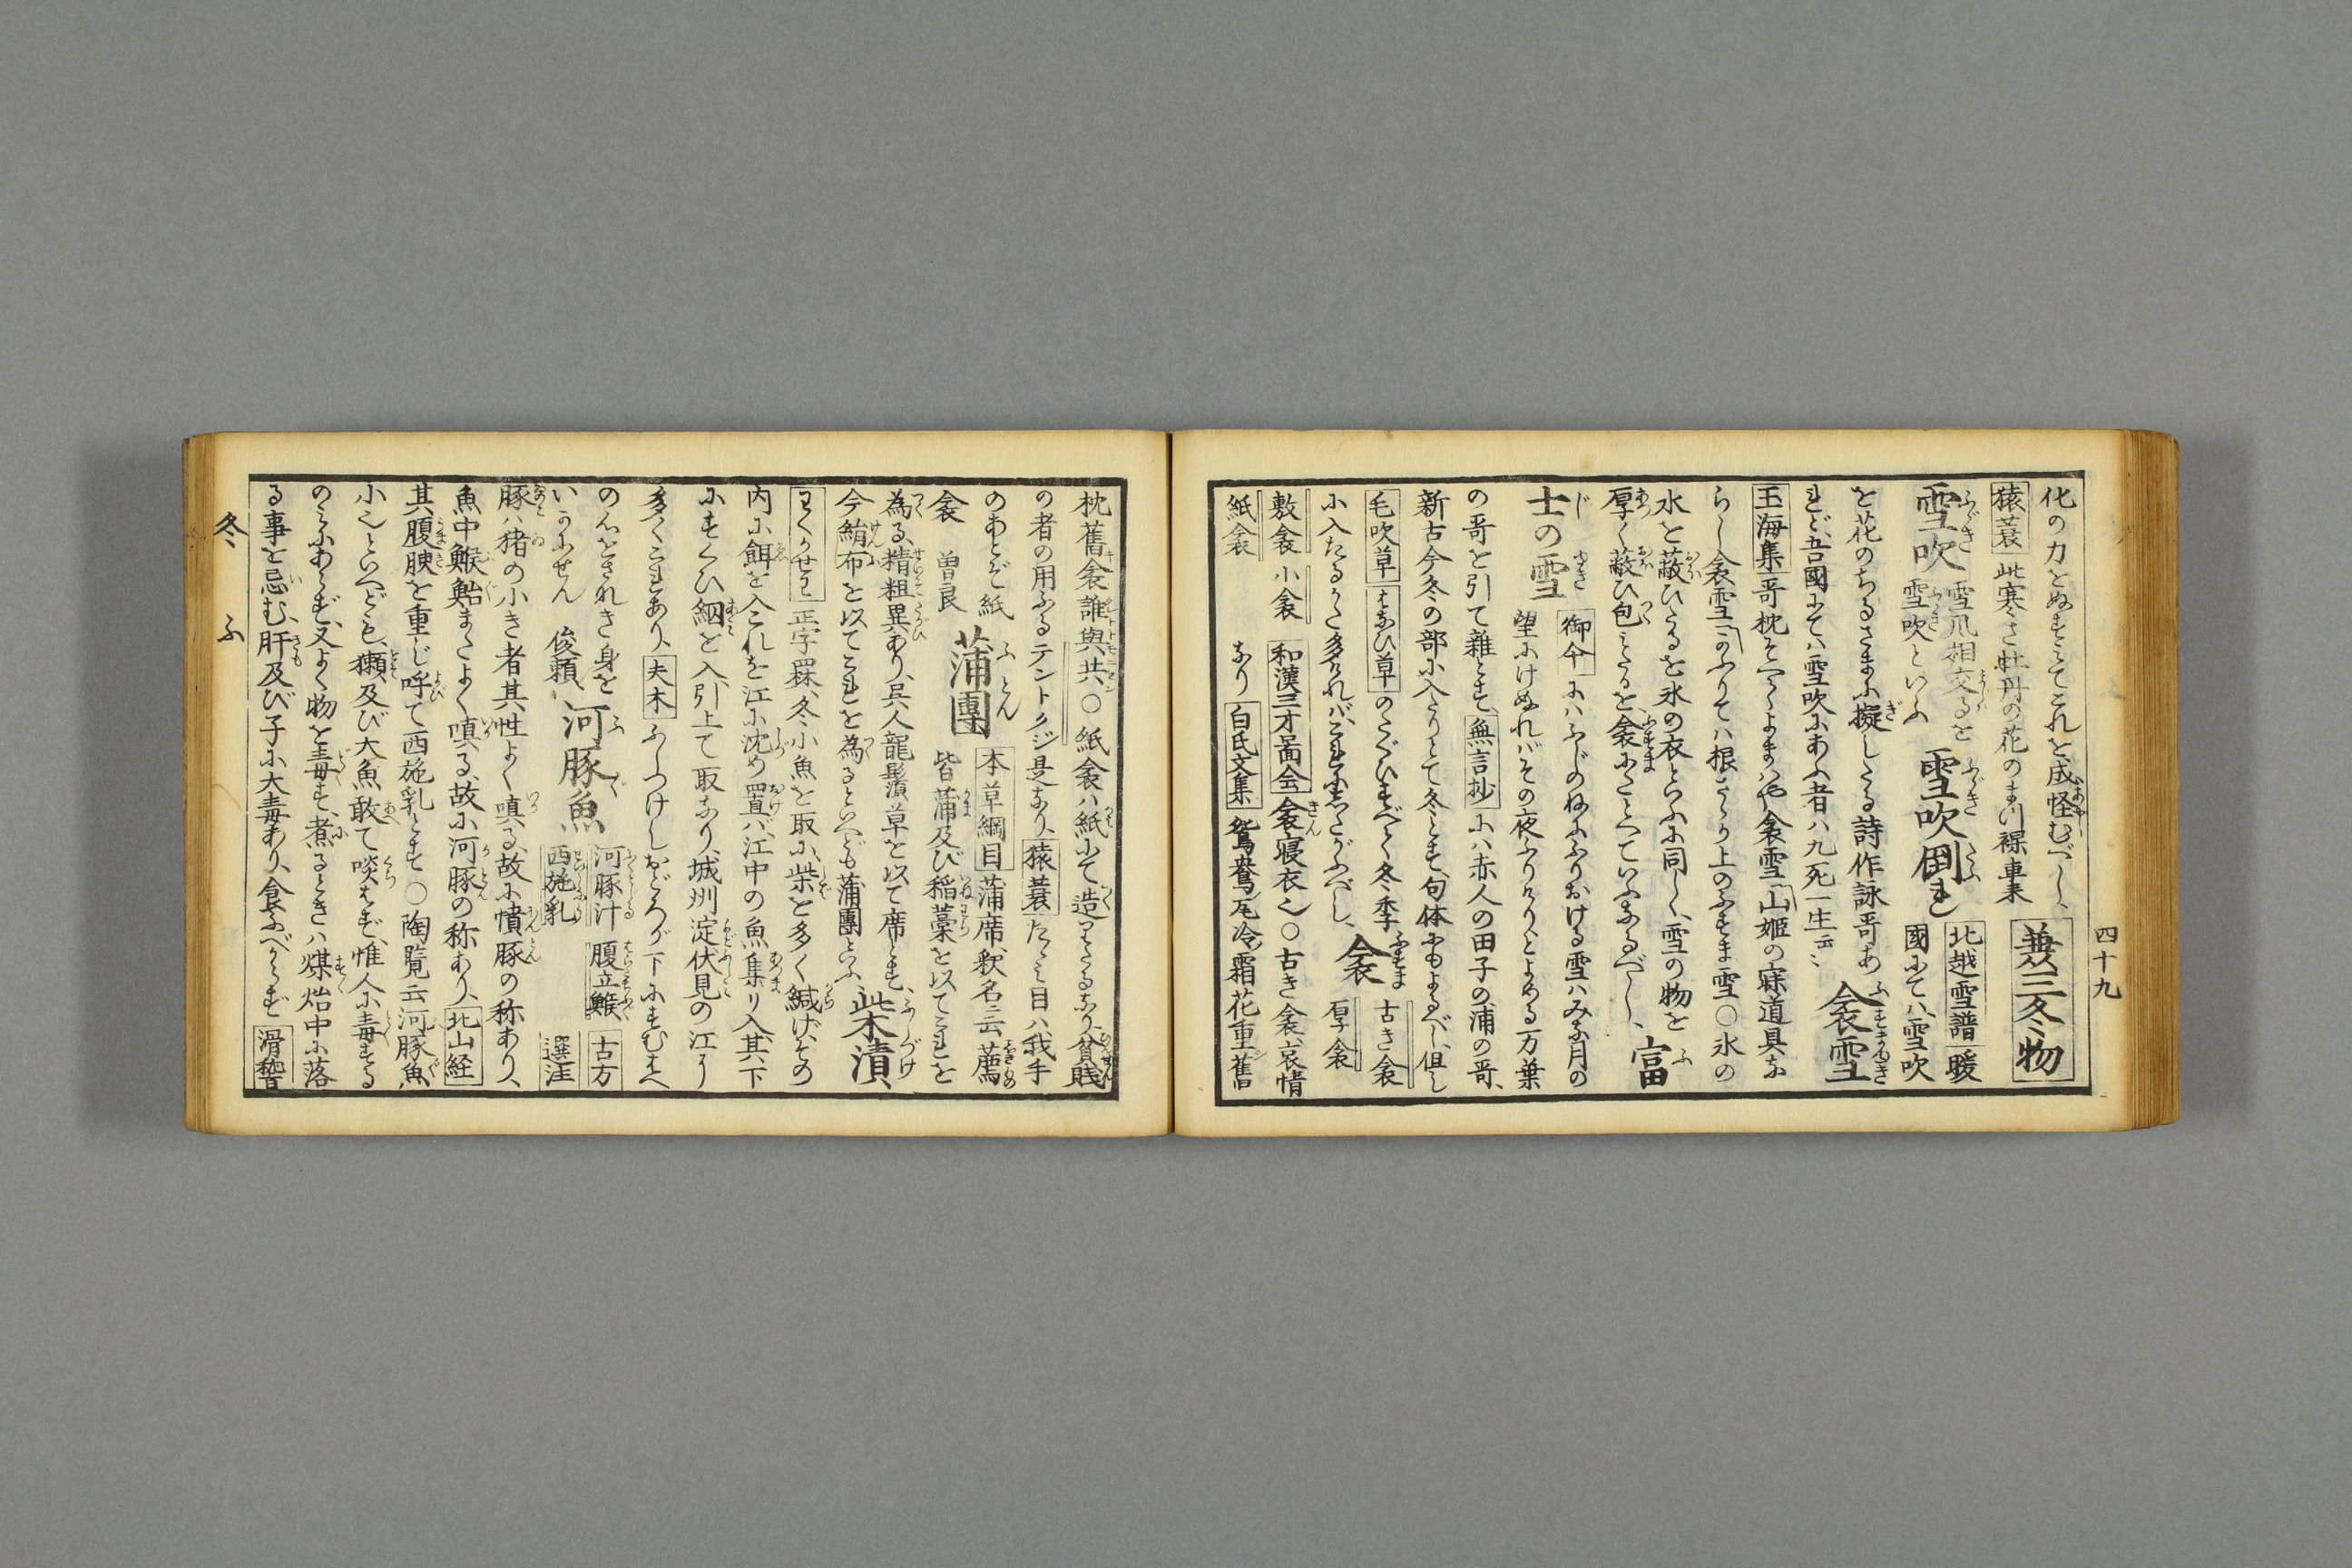 四十九
化の力をぬすみてこれを成怪むべし、
兼三冬物
猿蓑 此寒さ牡丹の花のまつ裸 車来
雪吹 雪風相交るを
雪吹といふ
雪吹倒れ 北越雪譜 暖
國にては、雪吹
を花のちるさまに擬したる詩作詠哥あ
れど、吾國にては雪吹にあふ者ハ九死一生云々
衾雪
玉海集 哥枕そへてよまはや衾雪 山姫の寐道具な
らし衾雪
水を蔽ひたるを氷の衣といふに同し、雪の物を
厚く蔽ひ包みたるを、衾にたとへていふなるべし、
富
士の雪 御傘 にハふじのねにふりおける雪ハみな月の
望にけぬれバその夜ふりけり、とよめる万葉
の哥を引て雑とす、無言抄 にハ赤人の田子の浦の哥、
新古今冬の部に入たりとて冬とす、句体にもよるべし、但し
毛吹草 はなひ草 のたぐひすべて冬季
に入たるかた多けれバ、これにしたがふべし、
衾 古き衾
厚衾
敷衾 小衾 和漢三才圖会 衾寝衣也〇古き衾、哀情
紙衾 なり 白氏文集 鴛鴦瓦冷霜花重舊
枕舊衾誰與共、〇紙衾ハ紙にて造りたるなり、貧賎
の者の用ふるテントクジ是なり、猿蓑 たゝみ目ハ我手
のあとぞ紙
衾 曽良
蒲團 本草綱目 蒲席、釈名云薦
皆蒲及び稲藁を以てこれを
為る、精粗異あり、呉人龍鬚草を以て席とす、
今絹布を以てこれを為るといへども蒲團といふ、
柴漬
正字罧、冬小魚を取に、柴を多く緘げ、その
内に餌を入これを江に沈め置バ、江中の魚集り入、其下
にすくひ網を入、引上て取なり、城州淀伏見の江に
多くこれあり、夫木 ふしつけしおどろが下にすむはへ
の心をさなき身を
いかにせん 俊頼
河豚魚 河豚汁 腹立鯸 古方
西施乳 選注
豚ハ猪の小き者其性よく嗔る、故に憤豚の称あり、
魚中鯸鮐またよく嗔る、故に河豚の称あり、北山経
其腹腴を重じ呼て西施乳とす〇陶覧云河豚魚、
小也といへども、獺及び大魚敢て啖はず、惟人に毒する
のみにあらず、又よく物を毒す、煮るときハ煤炲中に落
る事を忌む、肝及び子に大毒あり、食ふべからず 滑稽
冬 ふ